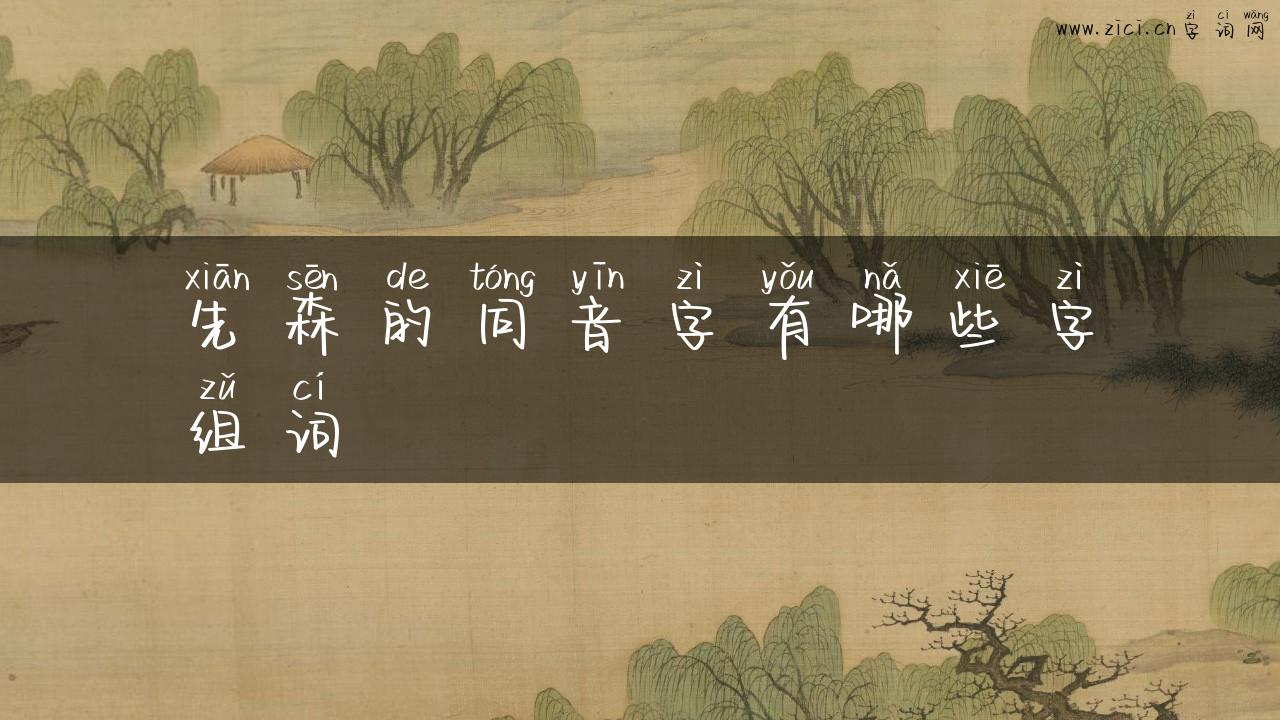 zì cí wǎng
www.zici.cn字词网
xiān sēn de tóng yīn zì yǒu nǎ xiē zì
先森的同音字有哪些字
zǔ cí
组词